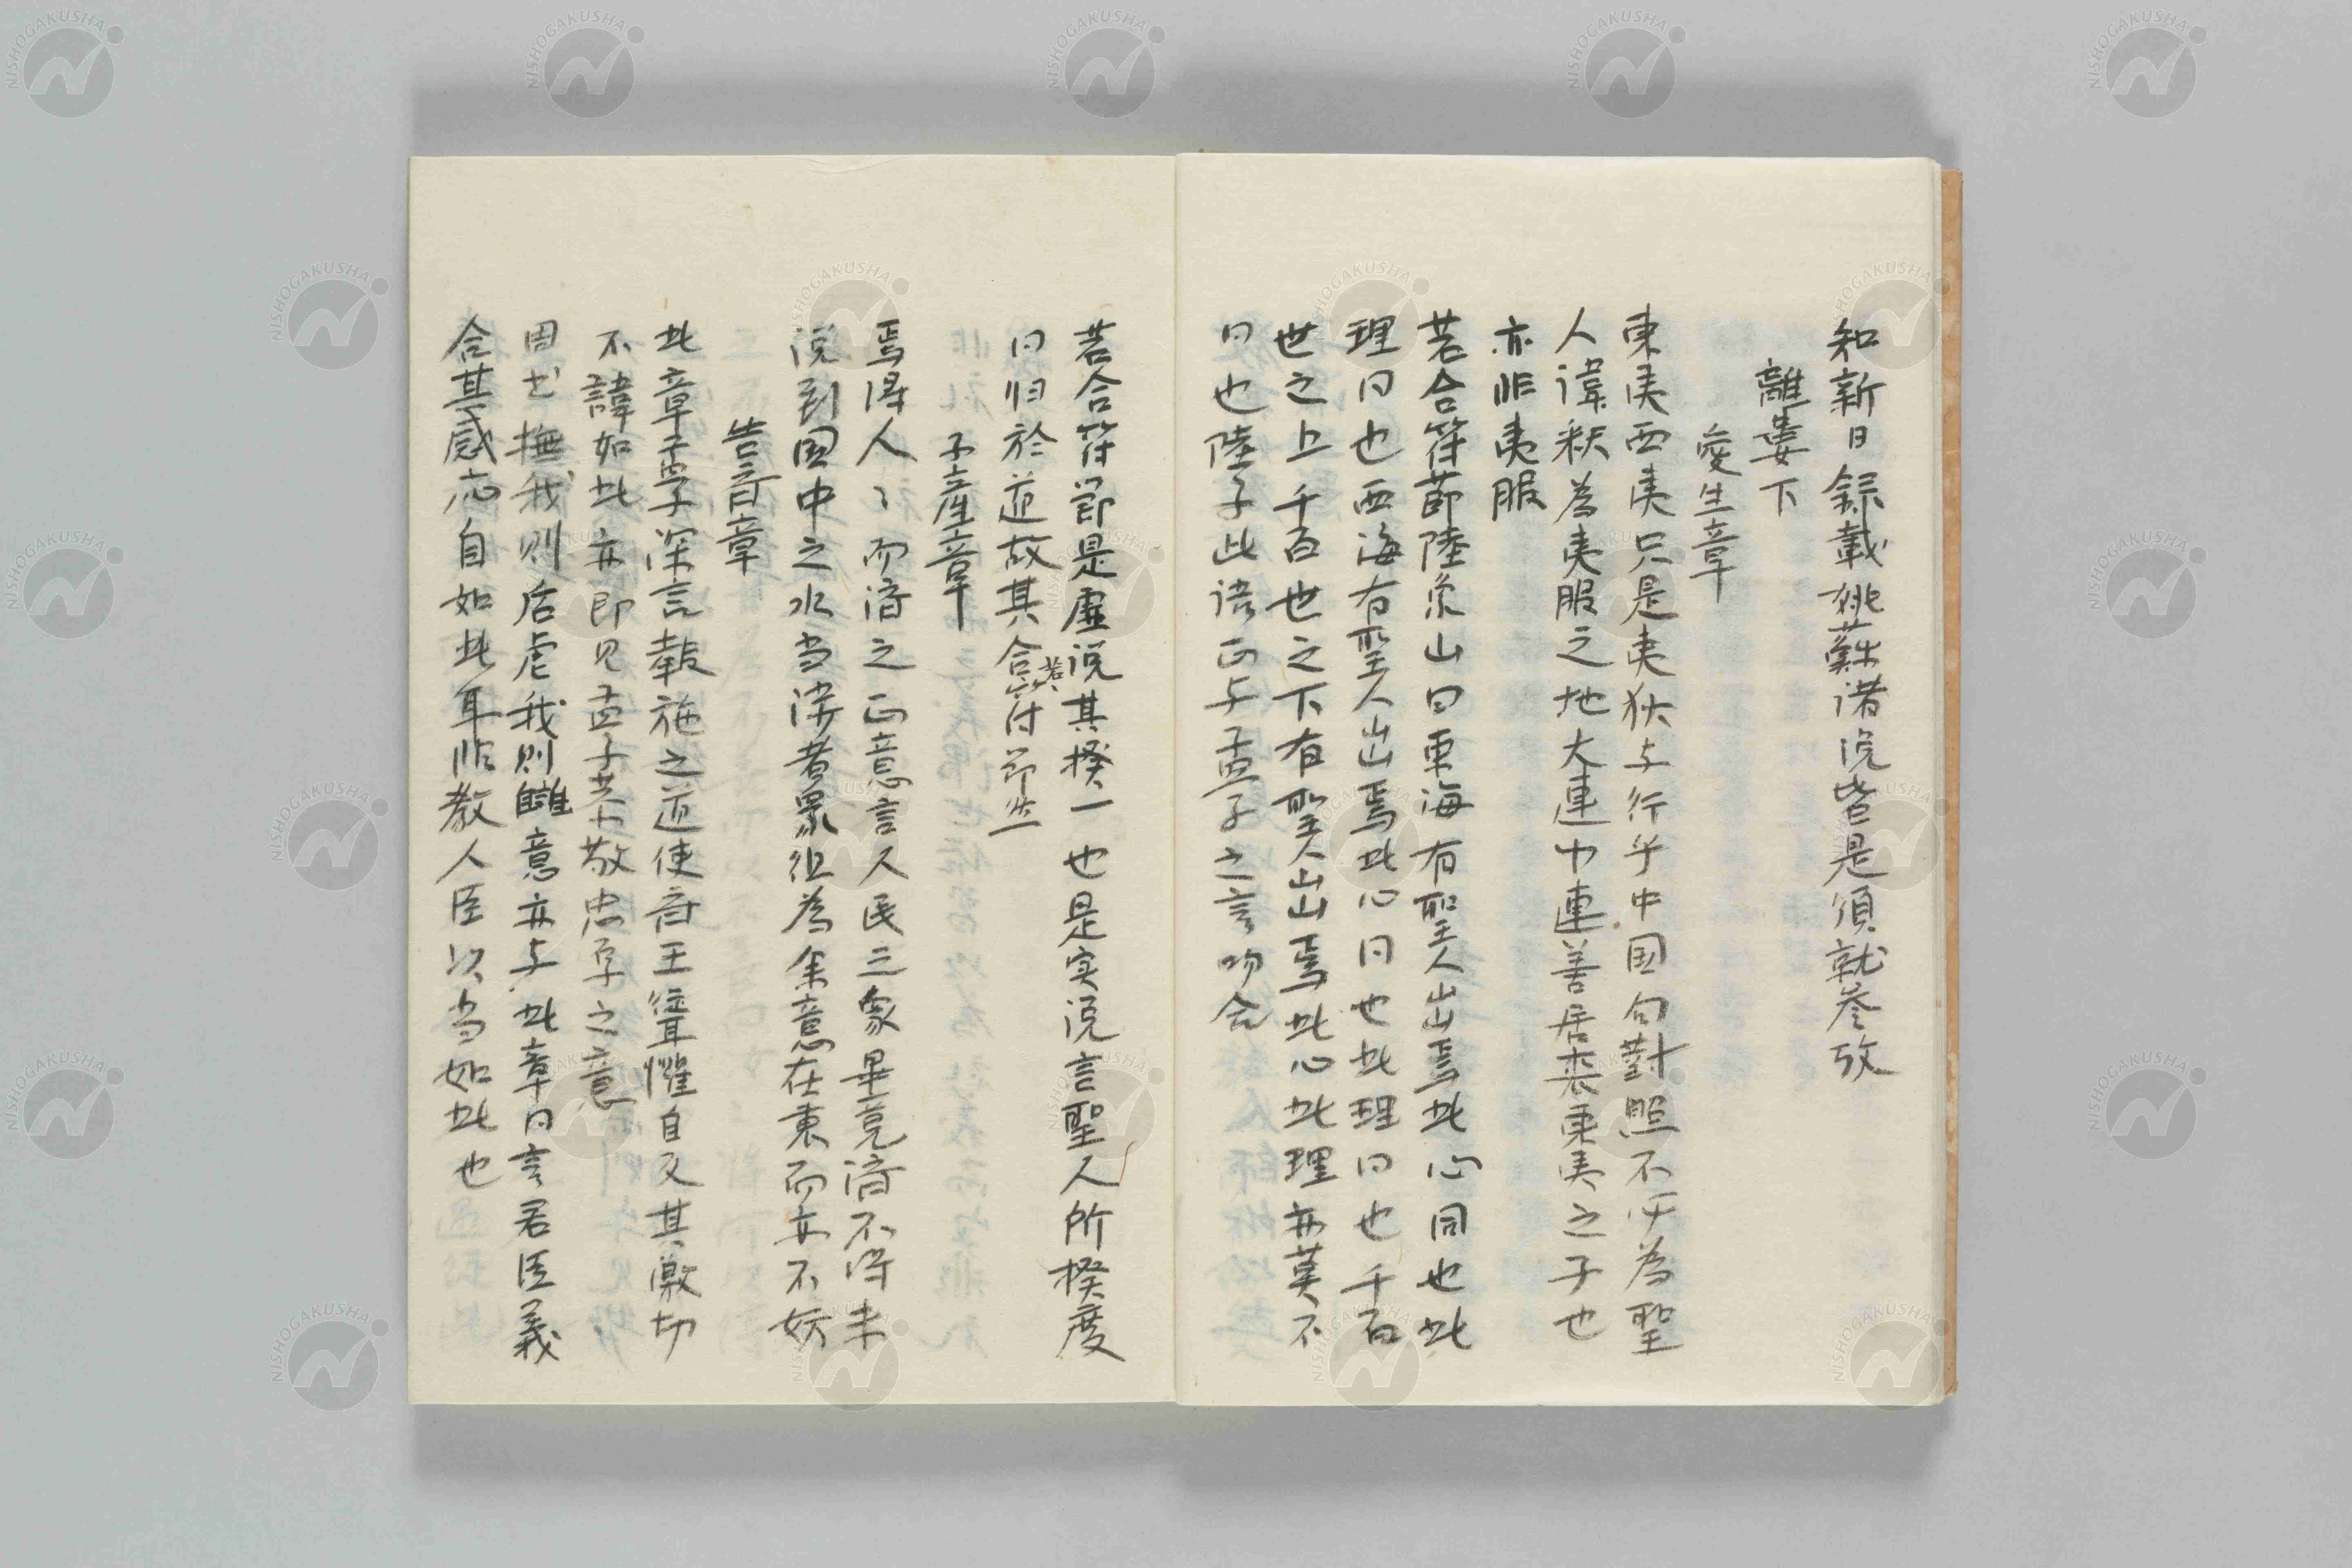 知新日録載姚蘇諸説皆是須就参攷
離婁下
舜生章
東夷西夷只是夷狄与行乎中国句對照不必為聖
人諱釈為夷服之地大連少連善居喪東夷之子也
亦非夷服
若合符節陸象山曰東海有聖人出焉此心同也此
理同也西海有聖人出焉此心同也此理同也千百
世之上千百世之下有聖人出焉此心此理亦莫不
同也陸子此語正与孟子之言吻合
若合符節是虚説其揆一也是実説言聖人所揆度
同归於道故其合若符節然
子産章
焉得人〻而濟之正意言人民之衆畢竟濟不得未
説到国中之水当渉者衆但為余意在裏而亦不妨
告斉章
此章孟子深言報施之道使斉王聳懼自反其激切
不諱如此亦即见孟子恭敬忠厚之意
周书撫我則后虐我則讎意亦与此章同言君臣義
合其感応自如此耳非教人臣以当如此也